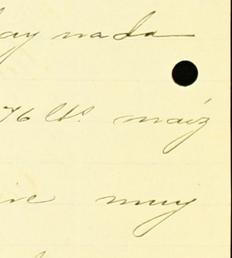 ay nada
76 lbs. maíz
muy